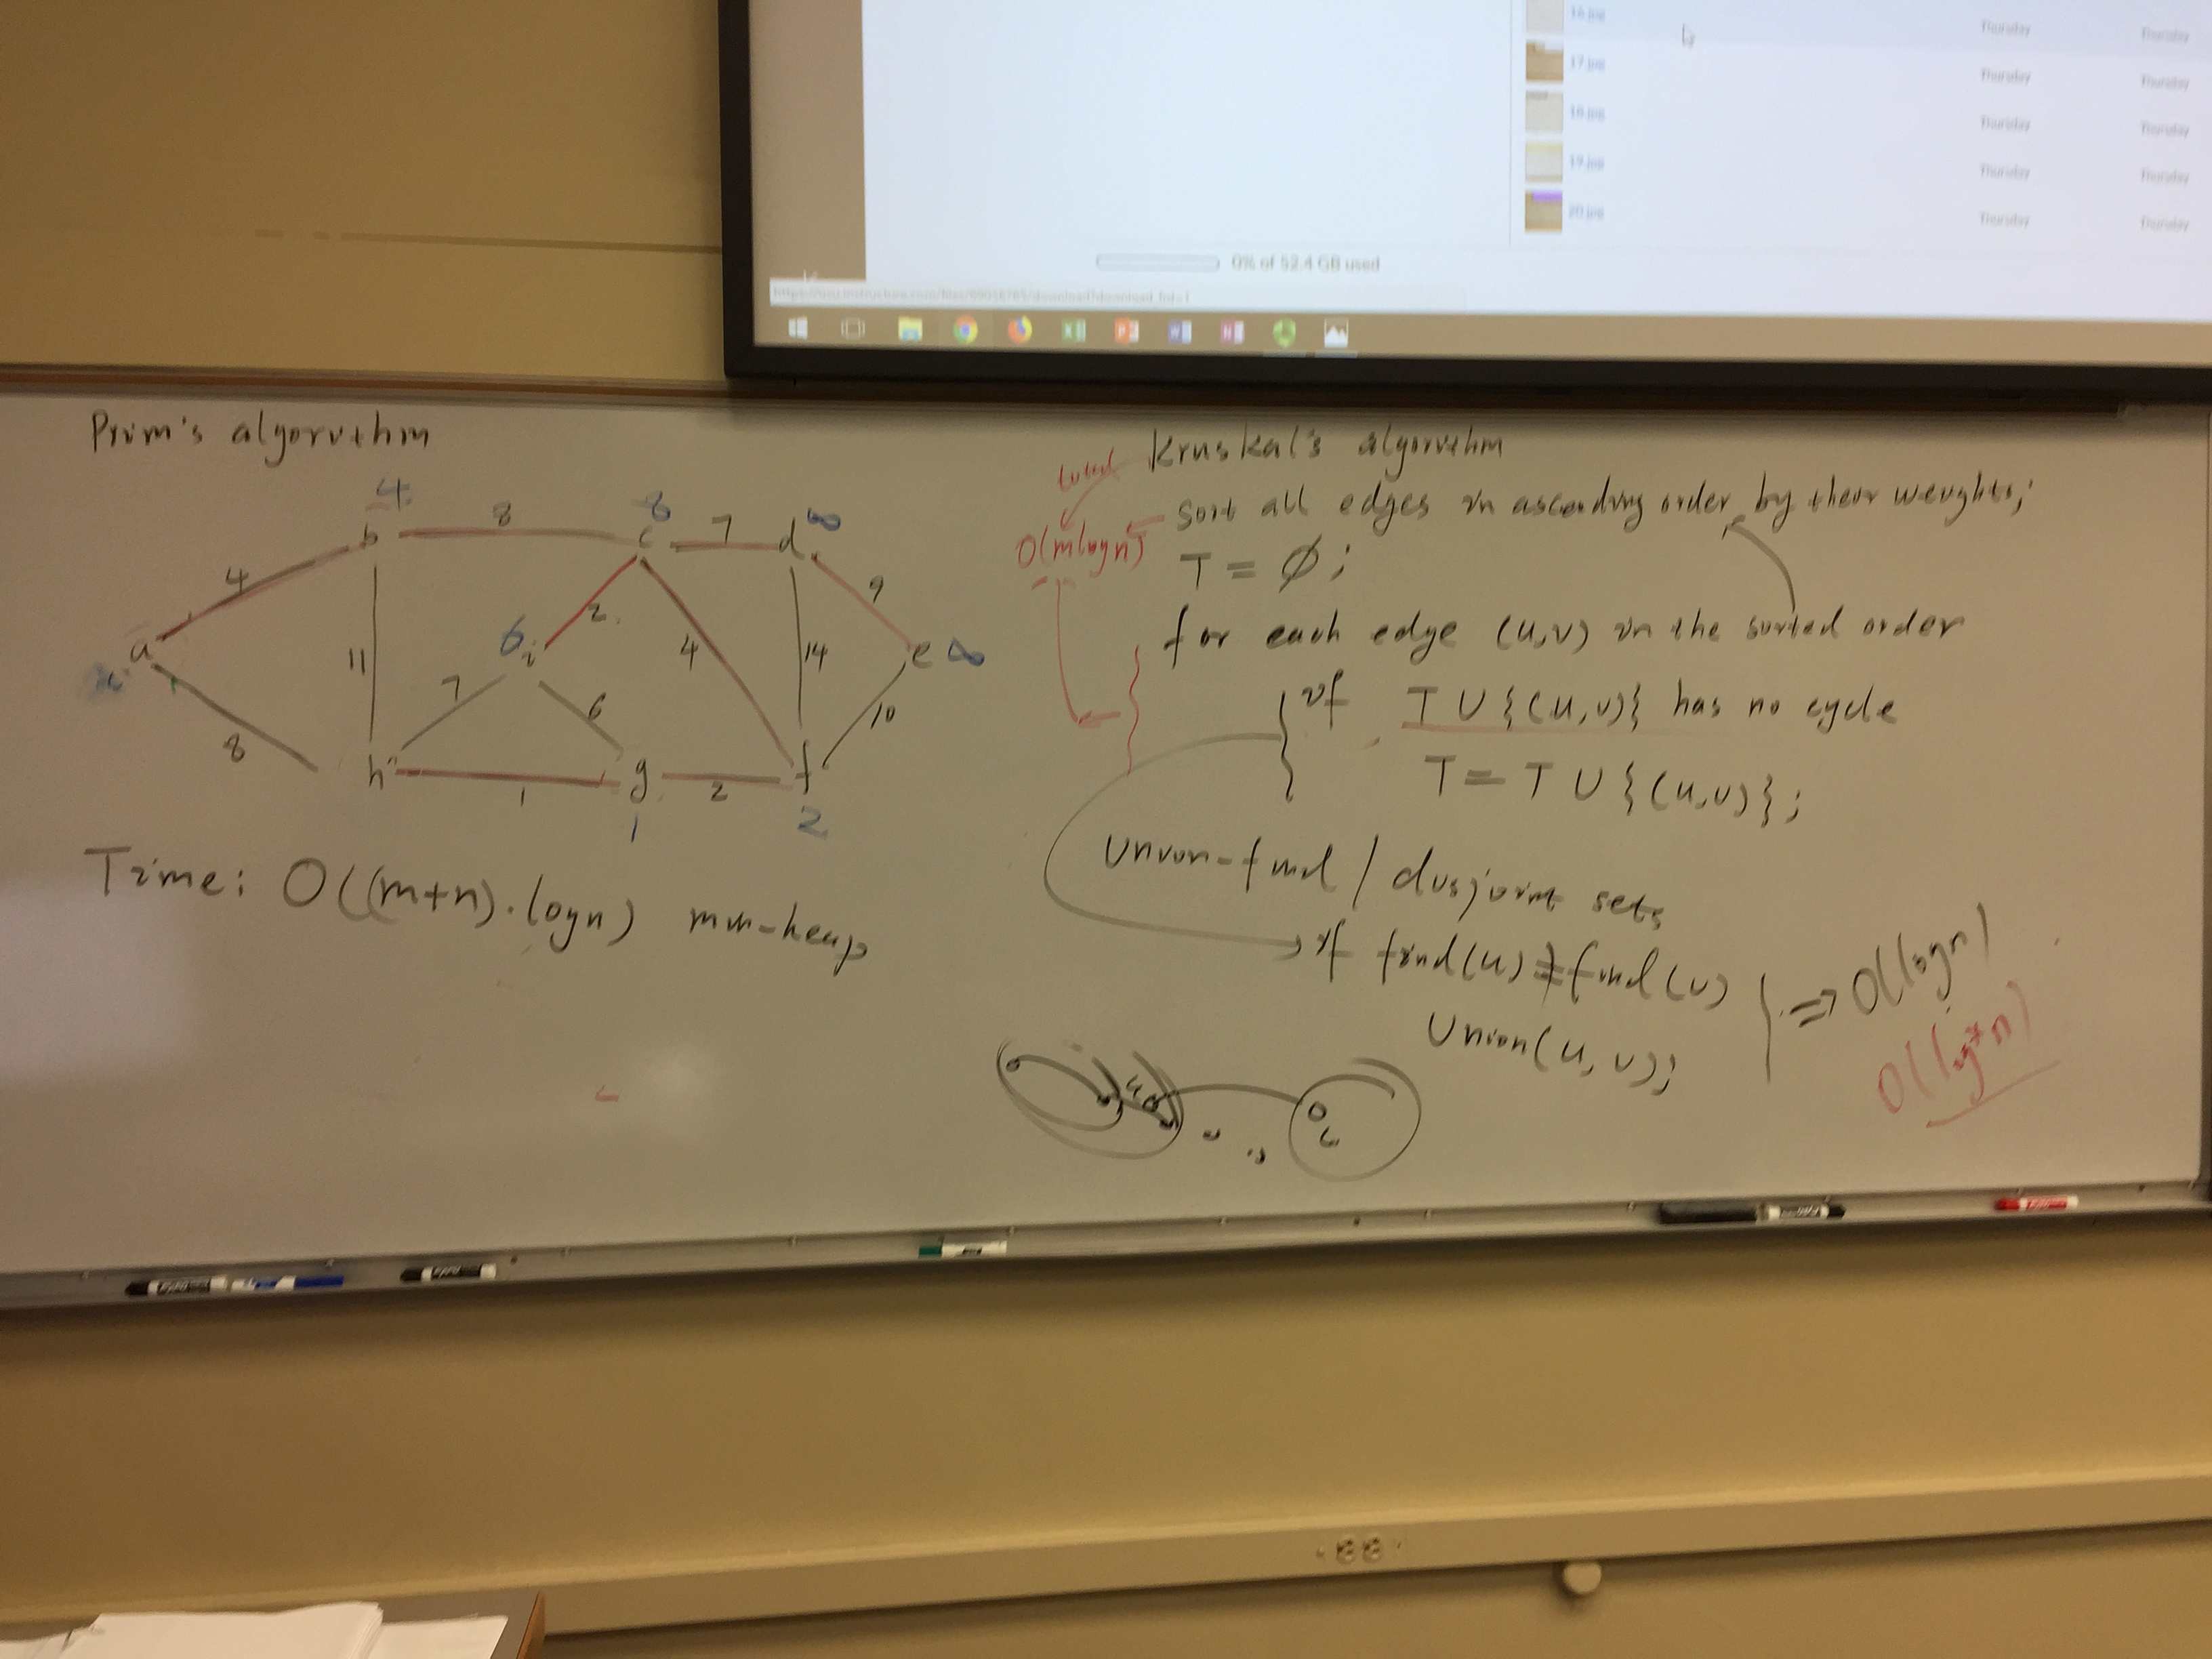 16.jpg Thursday Thursday
17.jpg Thursday Thursday
18.jpg Thursday Thursday
19.jpg Thursday Thursday
20.jpg Thursday Thursday
0% of 52.4 GB used
Prim's algorithm
4 8 8 7 d ∞
b c
4 9
a 11 6 i 2 4 14 e ∞
7 6 10
8
h g f
1 2
1 2
Time: O((m+n)·logn) min-heap
Kruskal's algorithm
total
O(mlogn) sort all edges in ascending order by their weights;
T = ∅;
for each edge (u,v) in the sorted order
if T ∪ {(u,v)} has no cycle
T = T ∪ {(u,v)};
Union-find / disjoint sets
if find(u) ≠ find(v)
Union(u,v);
⇒ O(logn)
O(log*n)